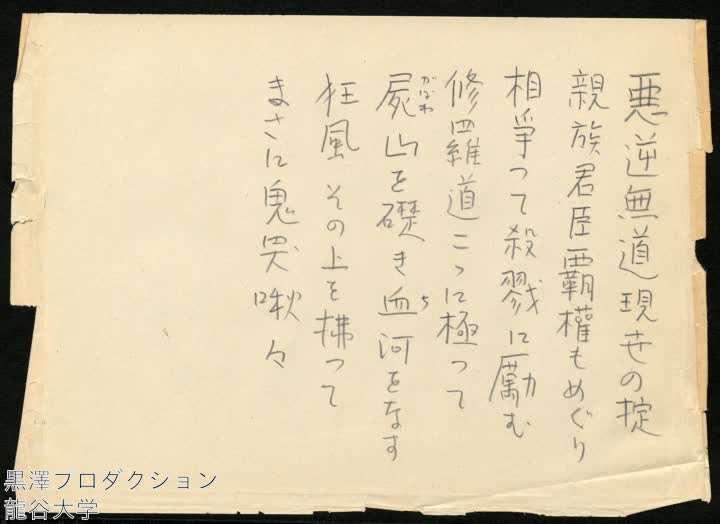 悪逆無道現世の掟
親族君臣覇権もめぐり
相爭つて殺戮に励む
修羅道こゝに極つて
屍山を礎き血河をなす
がばね
ち
狂風その上を拂つて
まさに鬼哭啾々
黒澤プロダクション
龍谷大学